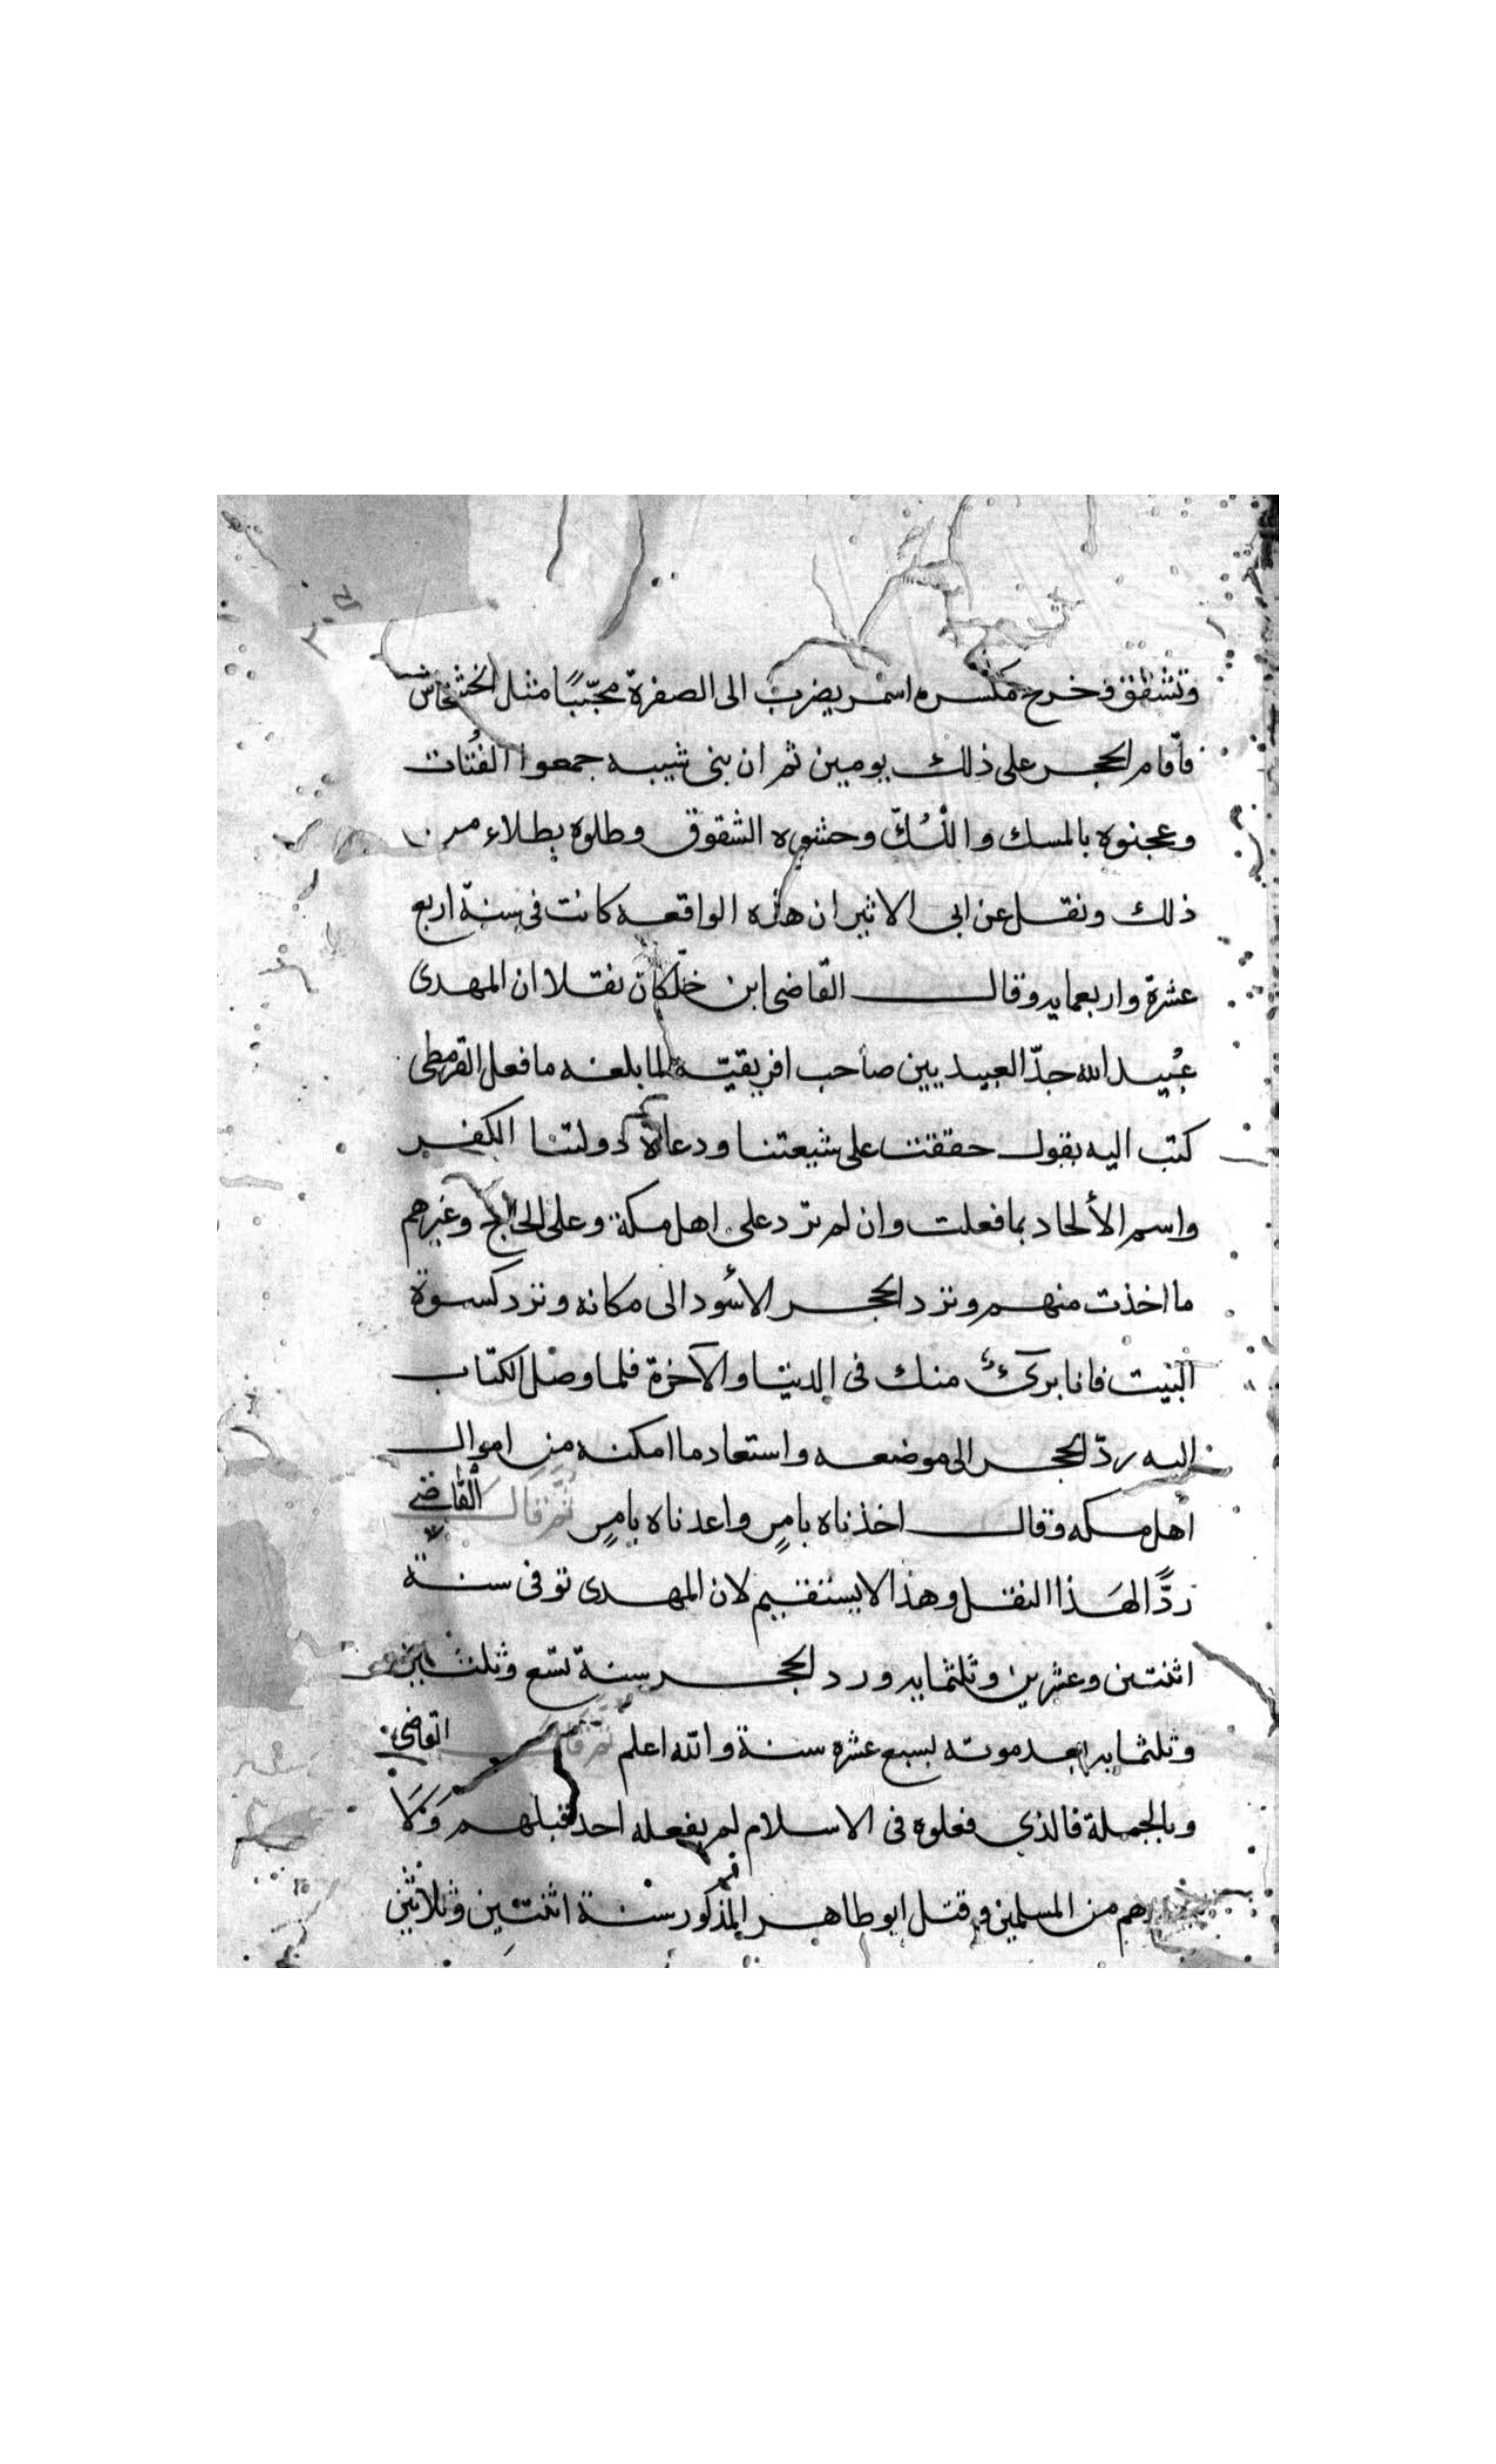 وتشقق وخرج مكسره اسمر يضرب الى الصفرة محبّبًا مثل الخشخاش
فاقام الحجر على ذلك يومين ثم ان بنى شيبه جمعوا الفُتات
وعجنوه بالمسك واللُّكّ وحشوه الشقوق وطلوه بطلاء من
ذلك ونقل عن ابى الاثير ان هذه الواقعه كانت فى سنة اربع
عشرة واربعمايه وقال القاضى ابن خلّكان نقلا ان المهدى
عُبيد الله جدّ العبيديين صاحب افريقيّة لما بلغه ما فعل القرمطى
كتب اليه يقول حققت على شيعتنا ودعاة دولتنا الكفر
واسم الألحاد بما فعلت وان لم ترّد على اهل مكة وعلى الحاج وغيرهم
ما اخذت منهم وترد الحجر الاسُود الى مكانه وترد كسوة
البيت فانا برىٌ منك فى الدنيا والآخرة فلما وصل الكتاب
اليه ردّ الحجر الى موضعه واستعاد ما امكنه من اموال
اهل مكه وقال اخذناه بامرٍ واعدناه بامرٍ ثم قال القاضى
ردًّا لهَذا النقل وهذا لا يستقيم لان المهدى توفى سنة
اثنتين وعشرين وثلثمايه ورد الحجر سنة تسع وثلثين
وثلثمايه بعد موته لسبع عشره سنة والله اعلم ثم قال القاضى
وبالجملة فالذي فعلوه فى الاسلام لم يفعله احد قبلهم وَلَا
من المسلمين وقتل ابو طاهر المذكور سنة اثنتين وثلاثين